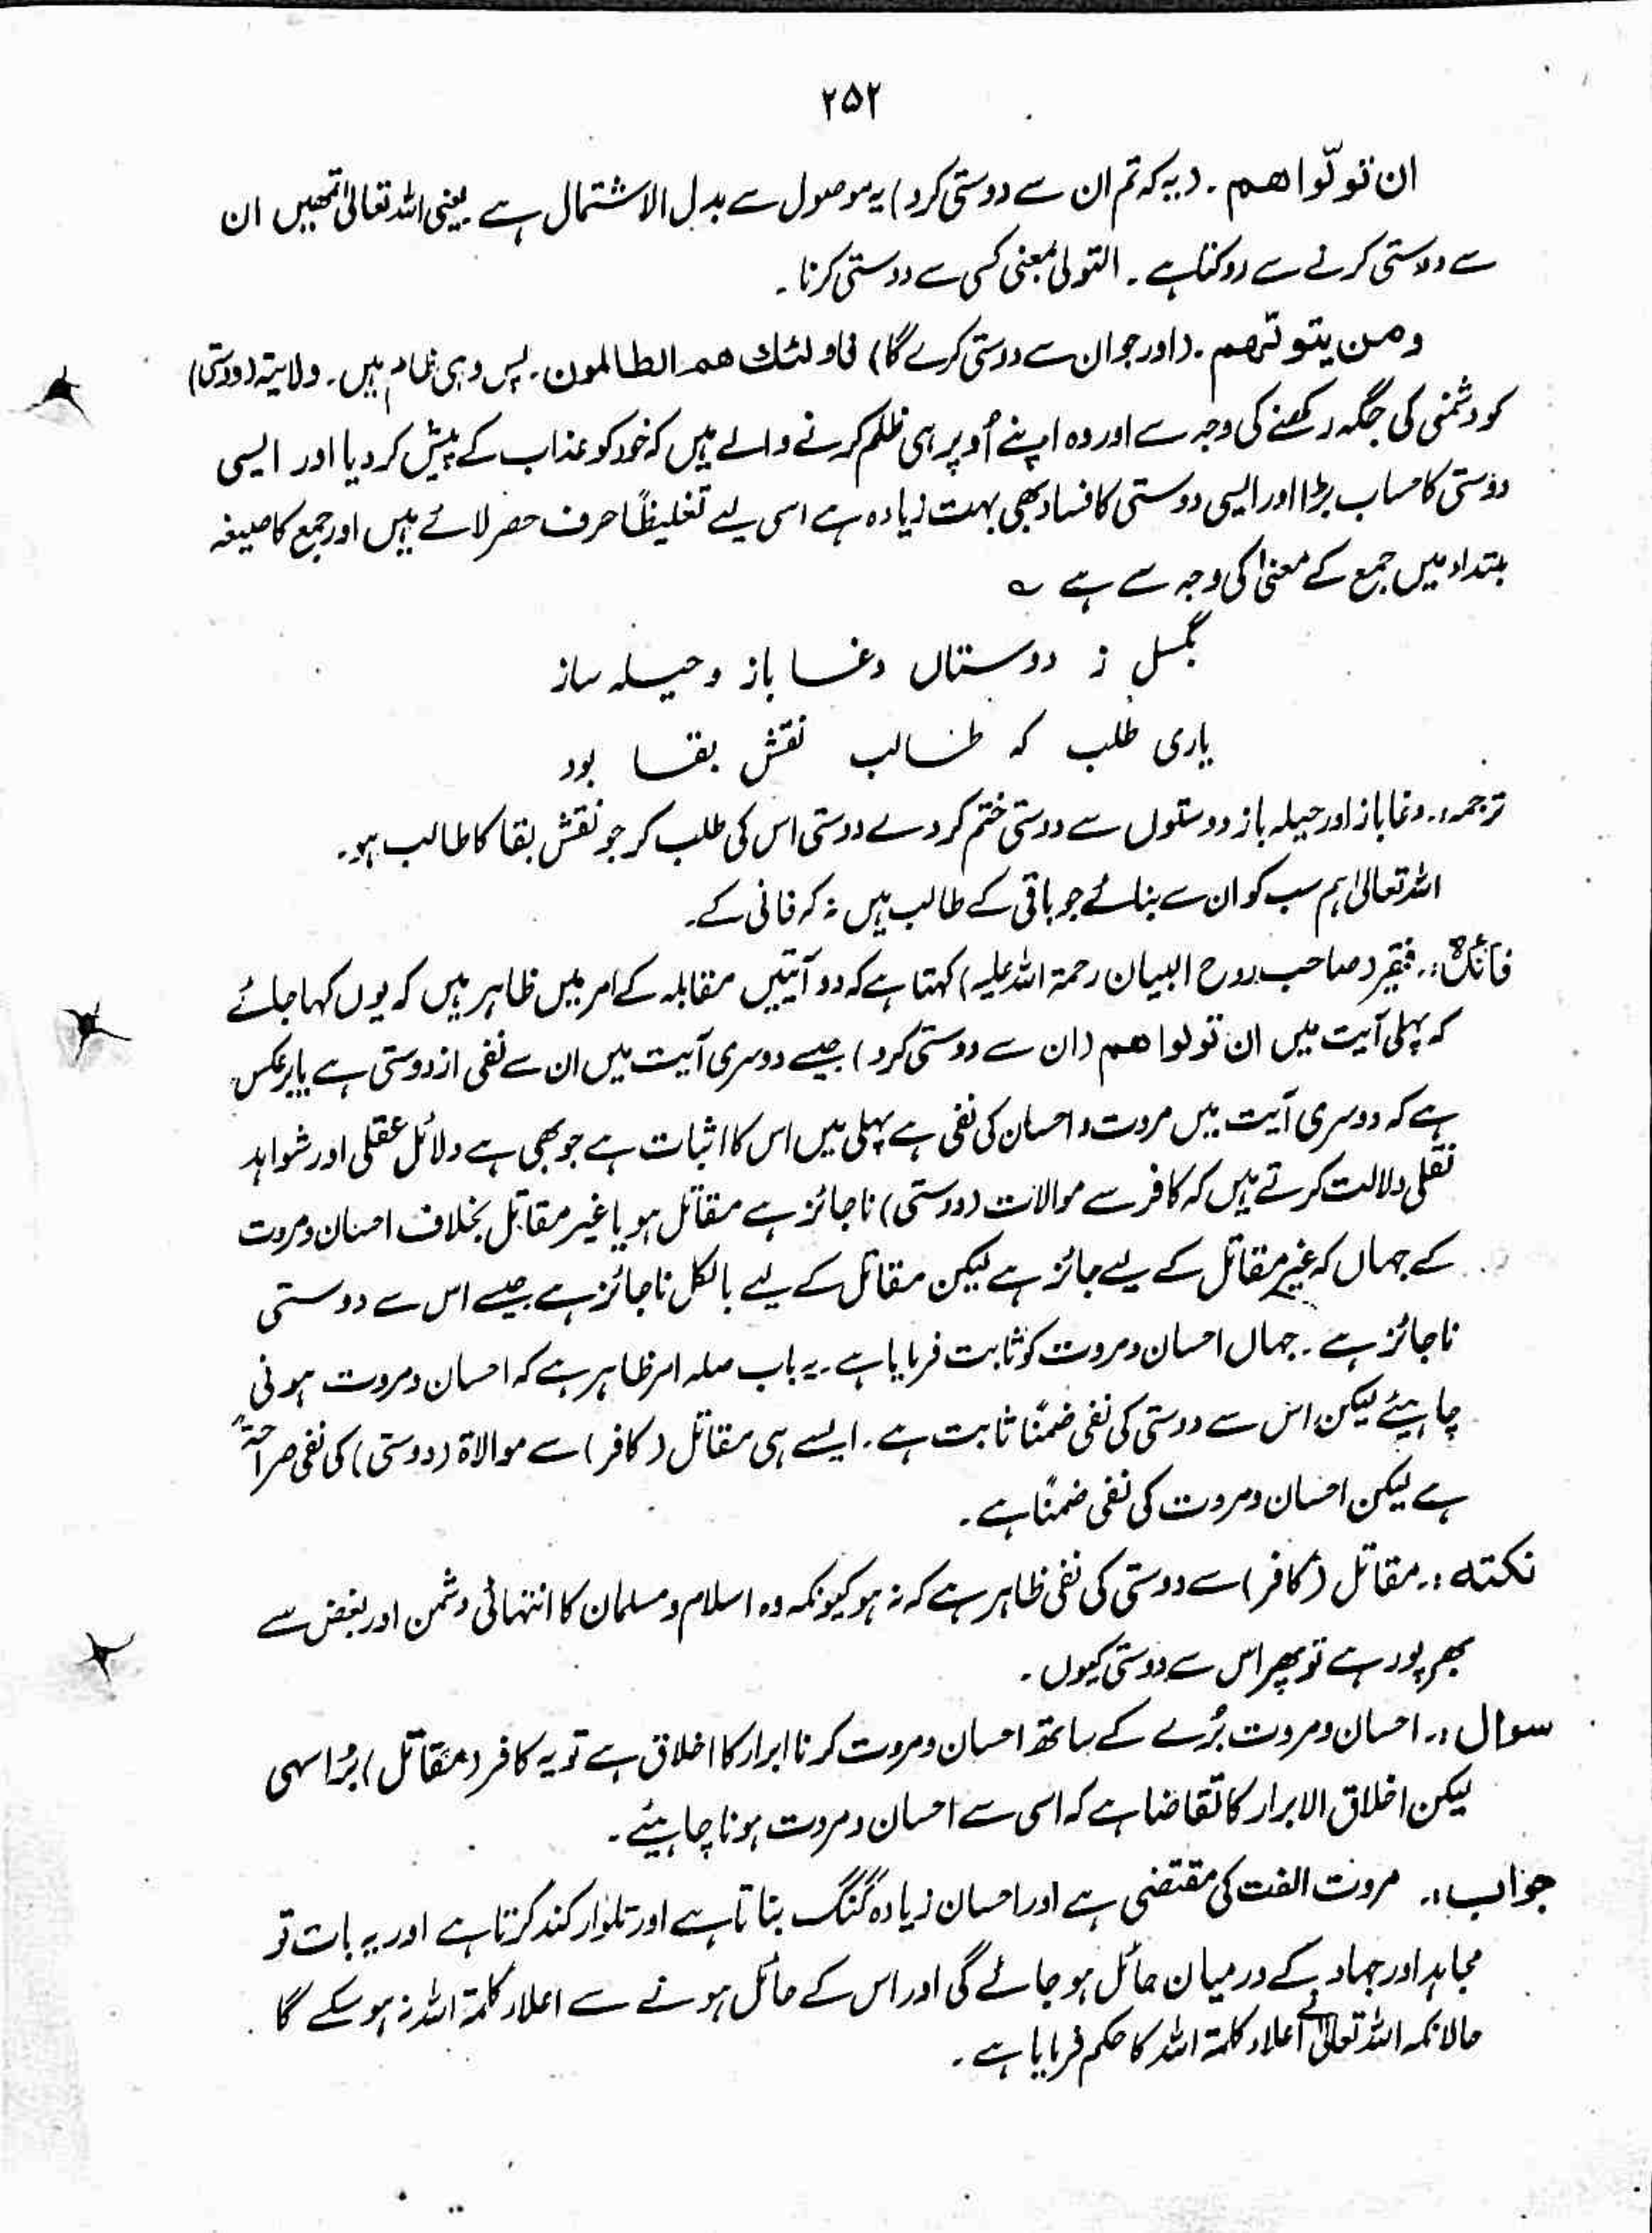 ۲۵۲
ان تولّوا هم ۔ (یہ کہ تم ان سے دوستی کرو) یہ موصول سے بدل الاشتمال ہے یعنی اللہ تعالیٰ تمھیں ان
سے دوستی کرنے سے روکتا ہے ۔ التولی بمعنی کسی سے دوستی کرنا ۔
ومن یتولّهم ۔ (اور جو ان سے دوستی کرے گا) فاولٰئك هم الظالمون ۔ پس وہی ظالم ہیں ۔ ولایۃ (دوستی)
کو دشمنی کی جگہ رکھنے کی وجہ سے اور وہ اپنے اُوپر ہی ظلم کرنے والے ہیں کہ خود کو عذاب کے پیش کر دیا اور ایسی
دوستی کا حساب بڑا اور ایسی دوستی کا فساد بھی بہت زیادہ ہے اسی لیے تغلیظاً حرف حصر لائے ہیں اور جمع کا صیغہ
مبتداء میں جمع کے معنیٰ کی وجہ سے ہے ؎
بگسل ز دوستاں دغا باز و حیلہ ساز
یاری طلب کہ طالب نقش بقا بود
ترجمہ :۔ دغا باز اور حیلہ باز دوستوں سے دوستی ختم کر دے دوستی اس کی طلب کر جو نقش بقا کا طالب ہو ۔
اللہ تعالیٰ ہم سب کو ان سے بنائے جو باقی کے طالب ہیں نہ کہ فانی کے ۔
فائدہ :۔ فقیر (صاحب روح البیان رحمۃ اللہ علیہ) کہتا ہے کہ دو آیتیں مقابلہ کے امر میں ظاہر ہیں کہ یوں کہا جائے
کہ پہلی آیت میں ان تولوا هم (ان سے دوستی کرو) جیسے دوسری آیت میں ان سے نفی از دوستی ہے یا برعکس
ہے کہ دوسری آیت میں مروت و احسان کی نفی ہے پہلی میں اس کا اثبات ہے جو بھی ہے دلائل عقلی اور شواہد
نقلی دلالت کرتے ہیں کہ کافر سے موالات (دوستی) ناجائز ہے مقاتل ہو یا غیر مقاتل بخلاف احسان و مروت
کے جہاں کہ غیر مقاتل کے لیے جائز ہے لیکن مقاتل کے لیے بالکل ناجائز ہے جیسے اس سے دوستی
ناجائز ہے ۔ جہاں احسان و مروت کو ثابت فرمایا ہے ۔ یہ باب صلہ امر ظاہر ہے کہ احسان و مروت ہونی
چاہیئے لیکن اس سے دوستی کی نفی ضمنًا ثابت ہے ۔ ایسے ہی مقاتل (کافر) سے موالاۃ (دوستی) کی نفی صراحۃً
ہے لیکن احسان و مروت کی نفی ضمنًا ہے ۔
نکتہ :۔ مقاتل (کافر) سے دوستی کی نفی ظاہر ہے کہ نہ ہو کیونکہ وہ اسلام و مسلمان کا انتہائی دشمن اور بغض سے
بھرپور ہے تو پھر اس سے دوستی کیوں ۔
سوال :۔ احسان و مروت بُرے کے ساتھ احسان و مروت کرنا ابرار کا اخلاق ہے تو یہ کافر (مقاتل) بُرا سہی
لیکن اخلاق الابرار کا تقاضا ہے کہ اسی سے احسان و مروت ہونا چاہیئے ۔
جواب :۔ مروت الفت کی مقتضی ہے اور احسان زیادہ گنگ بناتا ہے اور تلوار کند کرتا ہے اور یہ بات تو
مجاہد اور جہاد کے درمیان حائل ہو جائے گی اور اس کے حائل ہونے سے اعلاء کلمۃ اللہ نہ ہو سکے گا
حالانکہ اللہ تعالیٰ نے اعلاء کلمۃ اللہ کا حکم فرمایا ہے ۔